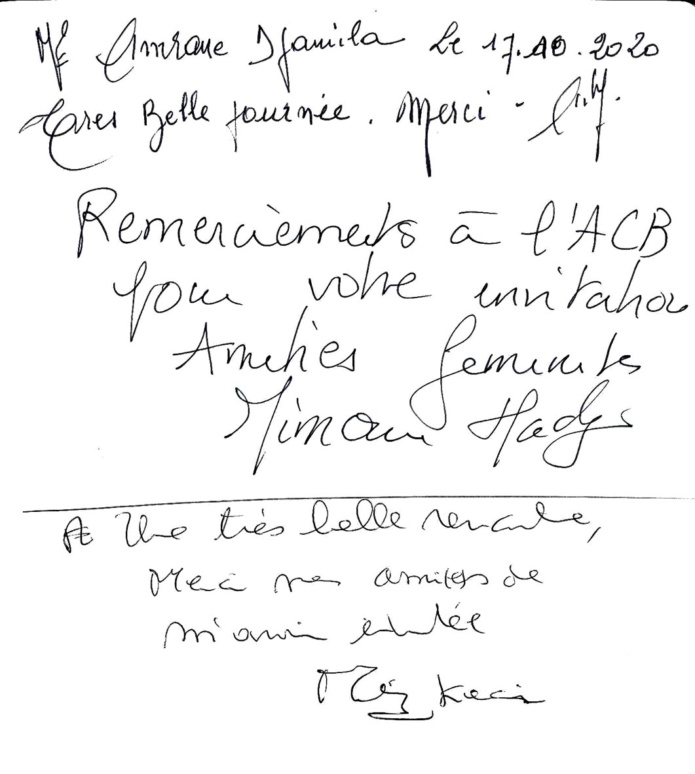 Me Amrane Djamila Le 17.10.2020
Tres Belle journée. Merci -
Remerciements à l'ACB
pour votre invitation
Amitiés feministes
Hadj
Une très belle rencontre,
amitiés de
m'avoir